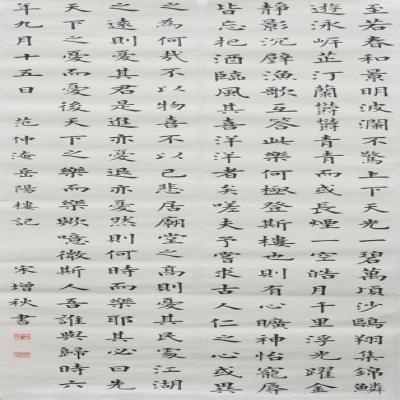 至若春和景明波瀾不驚上下天光一碧萬頃沙鷗翔集錦鱗
遊泳岸芷汀蘭鬱鬱青青而或長煙一空皓月千里浮光躍金
靜影沉璧漁歌互答此樂何極登斯樓也則有心曠神怡寵辱
皆忘把酒臨風其喜洋洋者矣嗟夫予嘗求古人仁之心或異
之為何哉不以物喜不以己悲居廟堂之高則憂其民處江湖
之遠則憂其君是進亦憂退亦憂然則何時而樂耶其必曰先
天下之憂而憂後天下之樂而樂歟噫微斯人吾誰與歸時六
年九月十五日 范仲淹岳陽樓記 宋增秋書